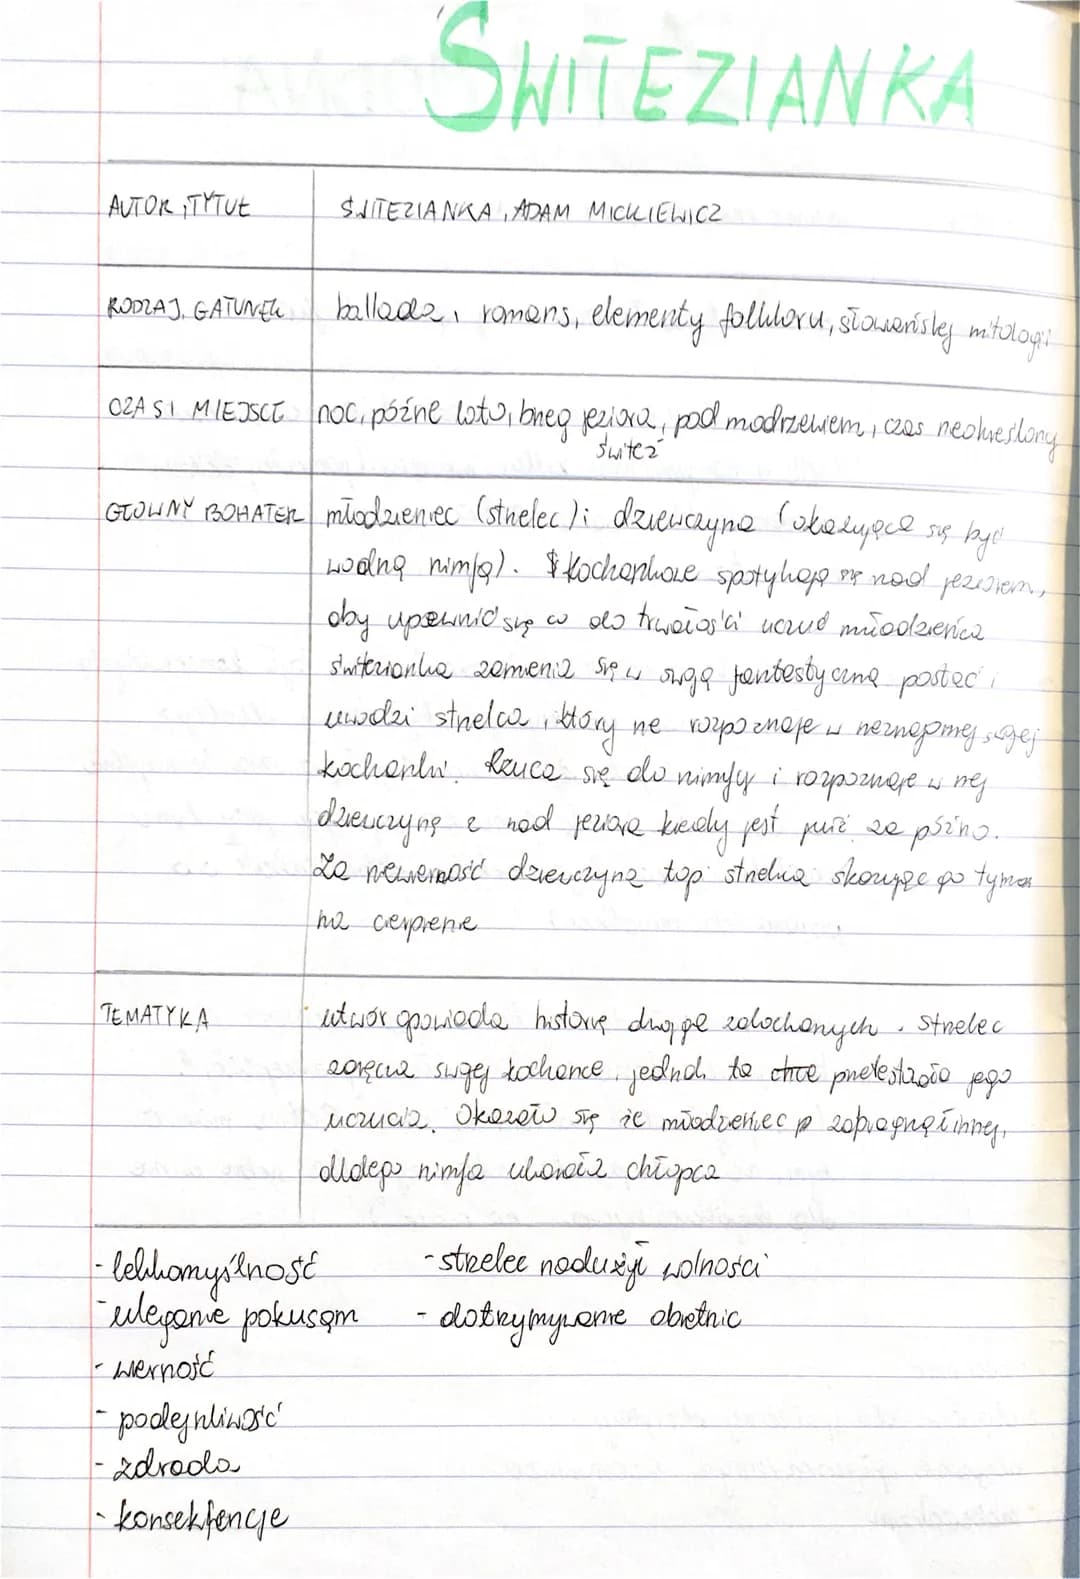 ŚWITEZIANKA
AUTOR, TYTUŁ
ŚWITEZIANKA, ADAM MICKIEWICZ
RODZAJ, GATUNEK
ballada, romans, elementy folkloru, słowiańskiej mitologii
CZAS I MIEJSCE
noc, późne lato, brzeg jeziora, pod modrzewiem, czas nieokreślony
Świteź
GŁÓWNY BOHATER
młodzieniec (strzelec) i dziewczyna (okazująca się być
wodną nimfą). Kochankowie spotykają się nad jeziorem,
aby upewnić się co do trwałości uczuć młodzieńca
świtezianka zamienia się w swoją fantastyczną postać i
uwodzi strzelca, który nie rozpoznaje w nieznajomej swojej
kochanki. Rzuca się do nimfy i rozpoznaje w niej
dziewczynę z nad jeziora kiedy jest już za późno.
Za niewierność dziewczyna topi strzelca skazując go tym
na cierpienie
TEMATYKA
utwór opowiada historię dwojga zakochanych. Strzelec
zaręcza swojej kochance, jednak ta chce przetestować jego
uczucia. Okazało się że młodzieniec p zapragnął innej,
dlatego nimfa ukarała chłopca
- lekkomyślność
- strzelec nadużył wolności
- uleganie pokusom
- dotrzymywanie obietnic
- wierność
- podejrzliwość
- zdrada
- konsekfencje